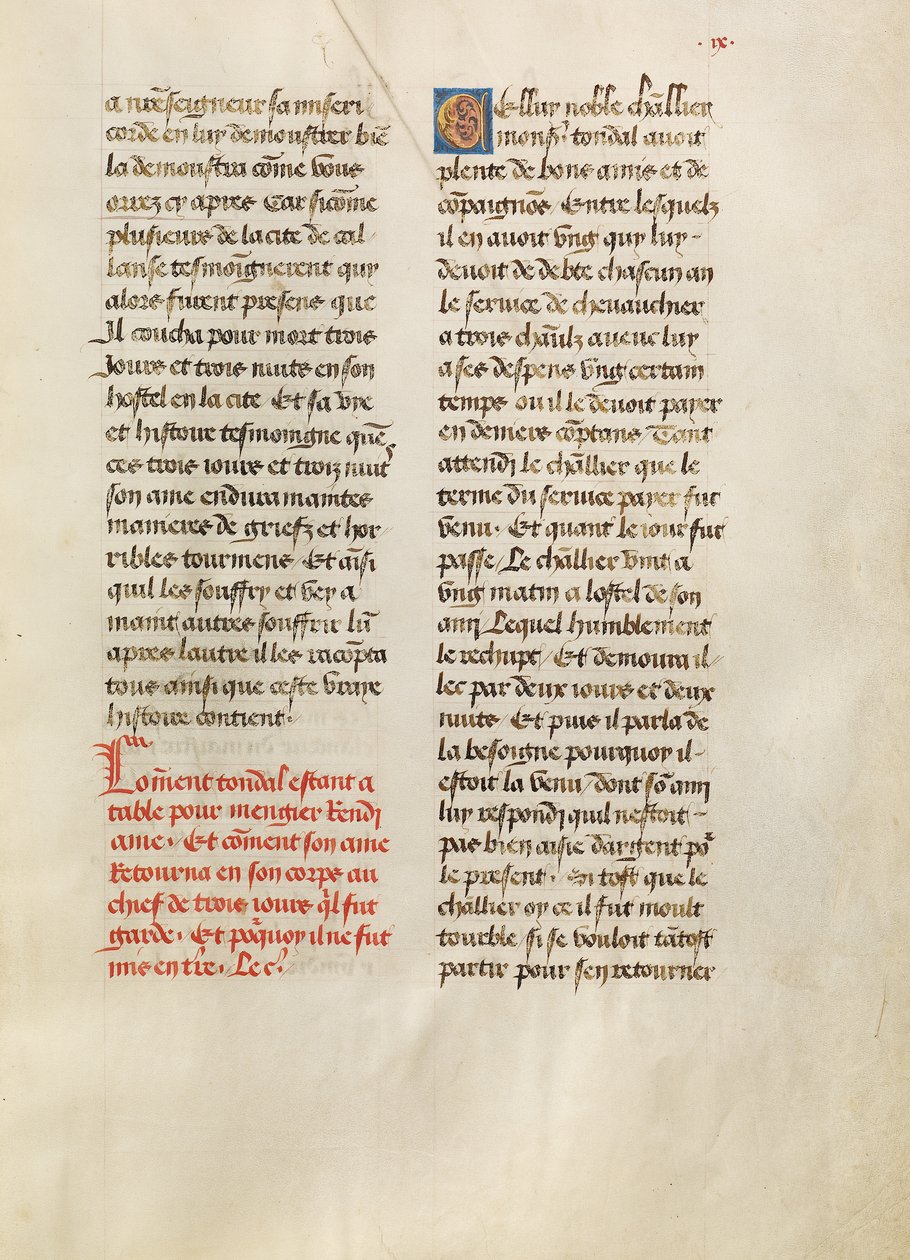 .ix.
a nr̃e seigneur sa miseri
corde en luy demoustrer biẽ
la demoustra cõme vous
orrez cy apres Car sicõme
plusieurs de la cite de cal/
lanse tesmoignerent quy
alors furent presens que
Il coucha pour mort trois
Jours et trois nuits en son
hostel en la cite / Et sa vye
et histoire tesmoingne quẽ
ces trois iours et troiz nuit
son ame endura maintes
manieres de griefz et hor/
ribles tourmens / Et aĩsi
quil les souffry et vey a
maint autres souffrir lũ
apres lautre il les racõpta
tous ainsi que ceste vraye
histoire contient.
Cõment tondal estant a
table pour mengier Rendi
ame. Et cõment son ame
Retourna en son corps au
chief de trois iours ql̃ fut
garde. Et põquoy il ne fut
mis en tr̃e. Le c.
Celluy noble chãllier
monsr̃. tondal auoit
plente de bons amis et de
cõpaignõs / Entre lesquelz
il en auoit vng quy luy -
deuoit de debte chascun an
le seruice de cheuauchier
a trois chãulz auenc luy
a ses despens vng certain
temps ou il le deuoit payer
en deniers cõptans / Tant
attendi le chãllier que le
terme du seruice payer fut
venu. Et quant le iour fut
passe / Le chãllier vint a
vng matin a lostel de son
amj / Lequel humblement
le rechupt / Et demoura il/
lec par deux iours et deux
nuits / Et puis il parla de
la besoigne pourquoy il -
estoit la venu / dont sõ amj
luy respondj quil nestoit -
pas bien aisie dargent põ
le present. En tost que le
chãllier oy ce il fut moult
tourble / si se vouloit tãtost
partir pour sen retourner